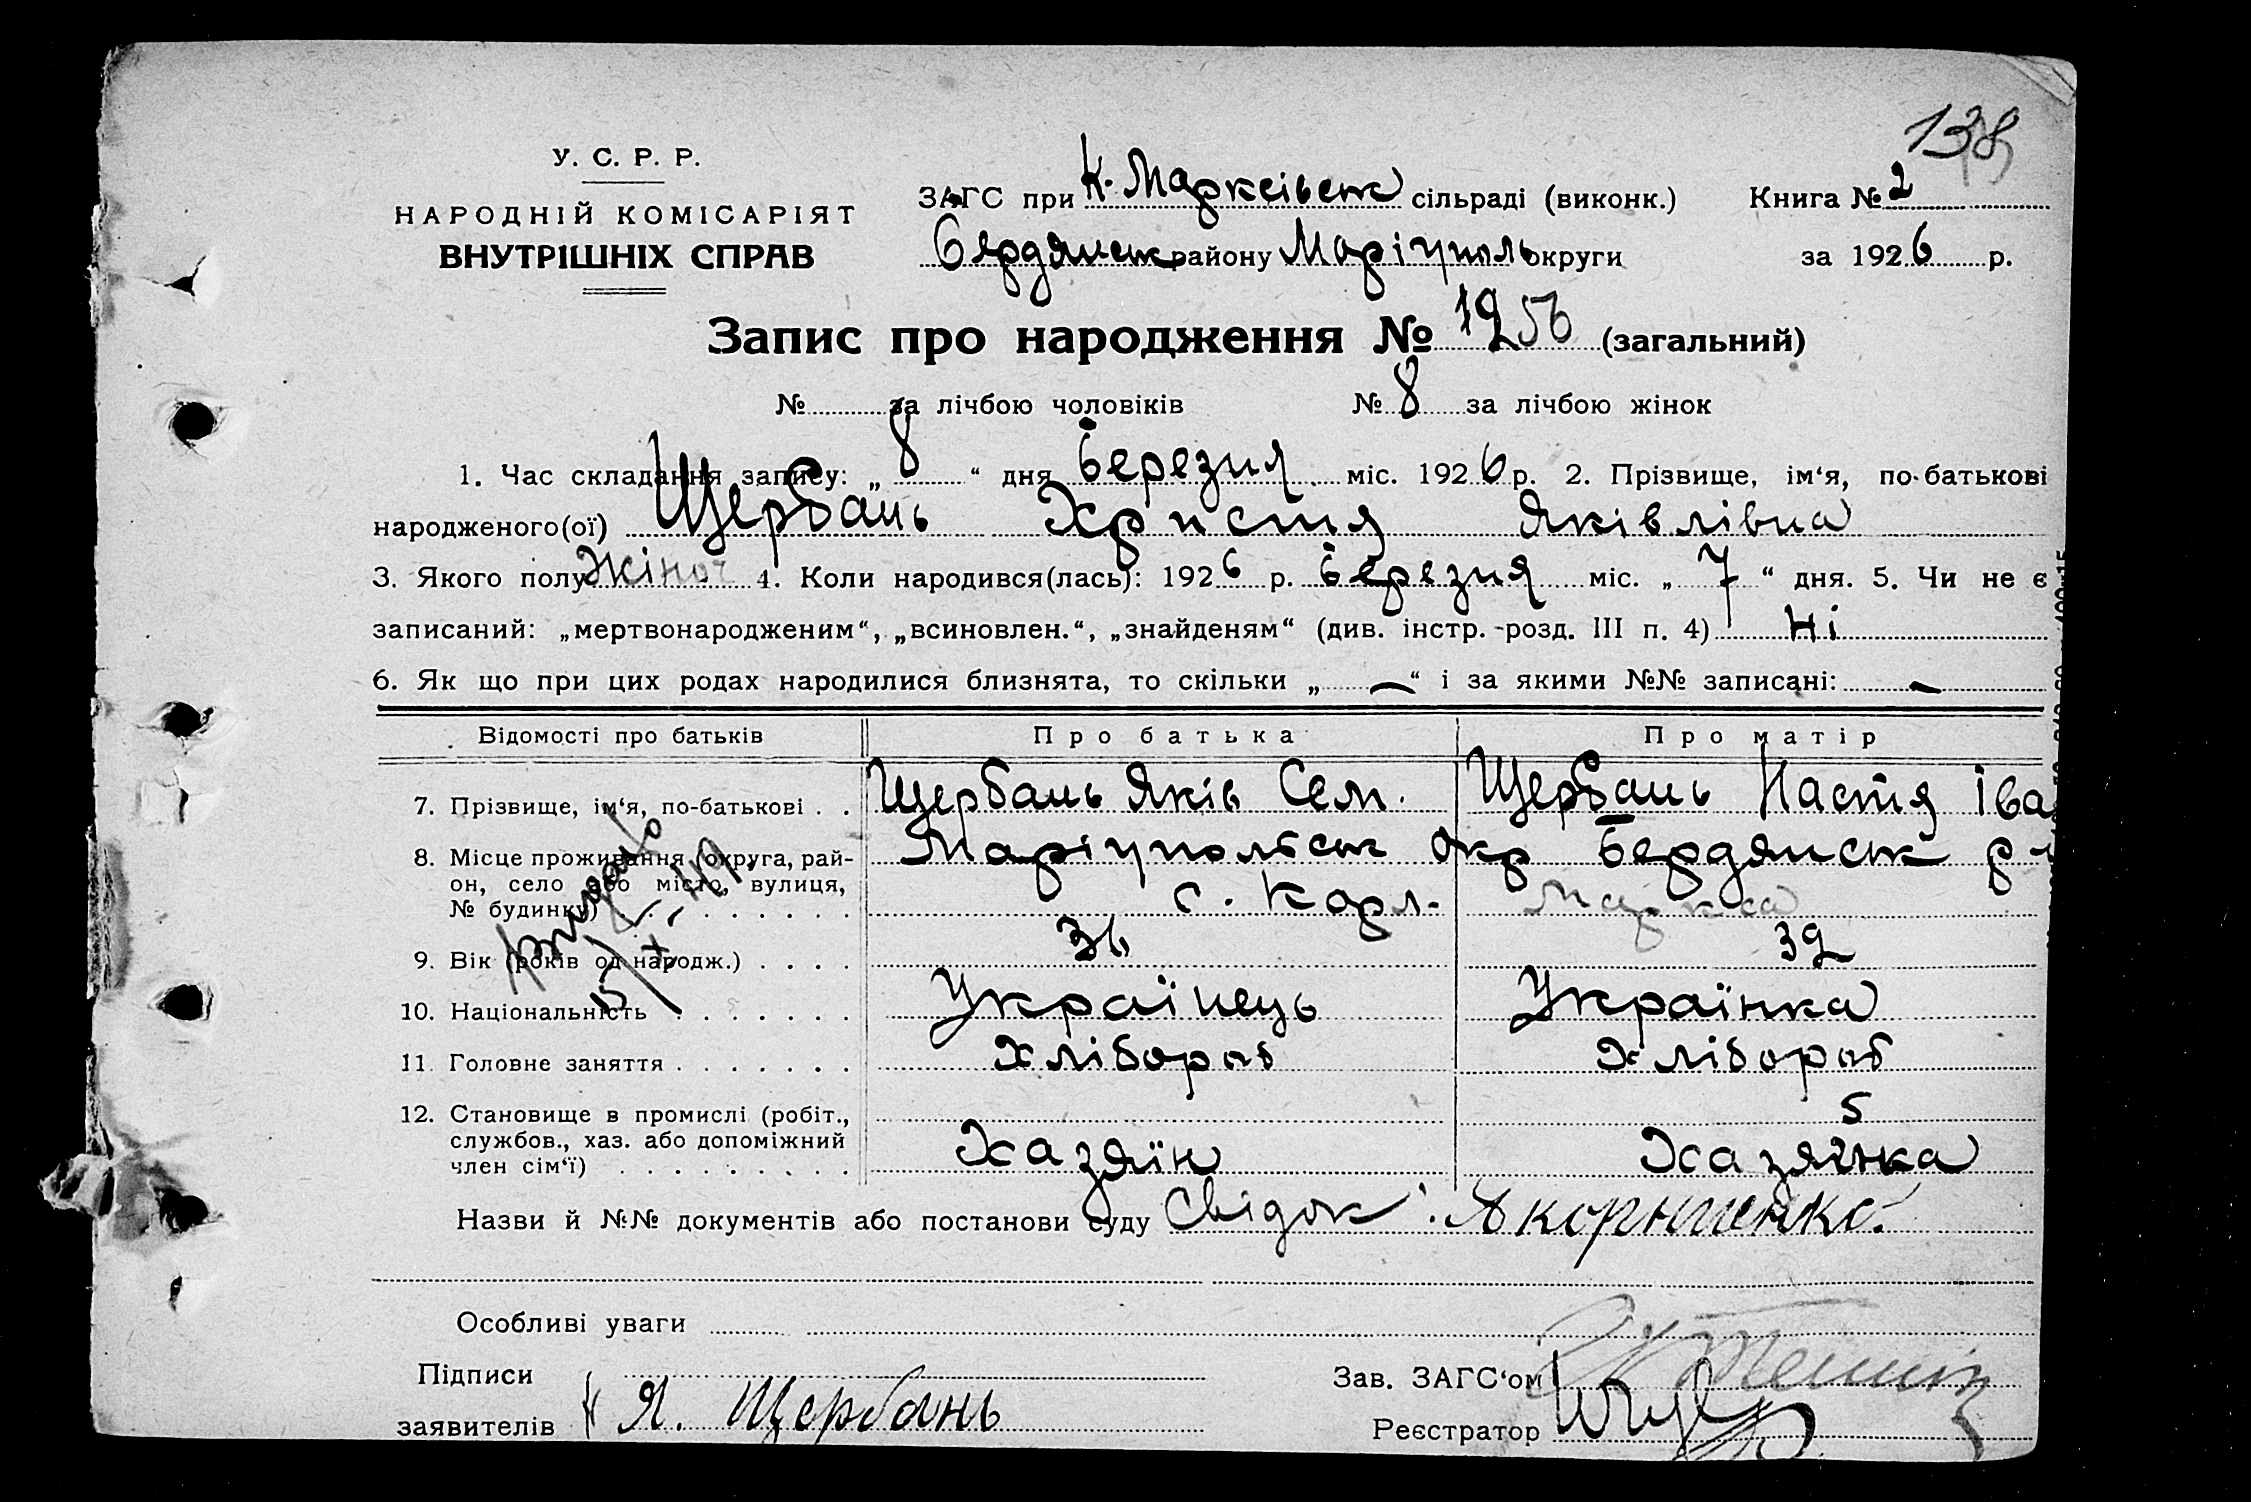 138
У. С. Р. Р.
НАРОДНІЙ КОМІСАРІЯТ
ВНУТРІШНІХ СПРАВ
ЗАГС при К. Марксівськ сільраді (виконк.) Книга № 2
Бердянськ району Маріуполь округи за 1926 р.
Запис про народження № (загальний)
№ за лічбою чоловіків № 8 за лічбою жінок
1. Час складання запису: „ 8 “ дня березня міс. 1926 р. 2. Прізвище, ім‘я, по-батькові
народженого(ої) Щербань Христя Яківлівна
3. Якого полу Жіноч 4. Коли народився(лась): 1926 р. березня міс. „ 7 “ дня. 5. Чи не є
записаний: „мертвонародженим“, „всиновлен.“, „знайденям“ (див. інстр. -розд. III п. 4) Ні
6. Як що при цих родах народилися близнята, то скільки „ — “ і за якими №№ записані: —
Відомості про батьків Про батька Про матір
7. Прізвище, ім‘я, по-батькові . . Щербань Яків Сем. Щербань Настя Іва
8. Місце проживання (округа, рай- Маріупольськ Окр Бердянськ р
он, село або місто, вулиця,
№ будинку) с. Карл. Маркса
9. Вік (років од народж.) . . . . 36 32
10. Національність . . . . . . . Українець Українка
11. Головне заняття . . . . . . . Хлібороб Хлібороб
12. Становище в промислі (робіт., 5
службов., хаз. або допоміжний Хазяїн Хазяїнка
член сім‘ї) . . . . . . . . .
Назви й №№ документів або постанови суду Свідок:
Особливі уваги
Підписи Зав. ЗАГС‘ом
заявителів Я. Щербань Реєстратор